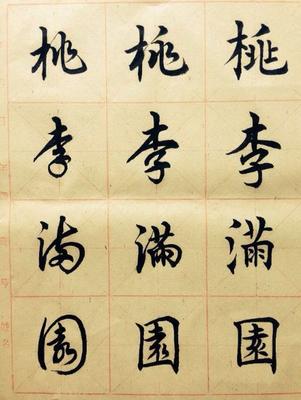 桃李滿園
桃李滿園
桃李滿園